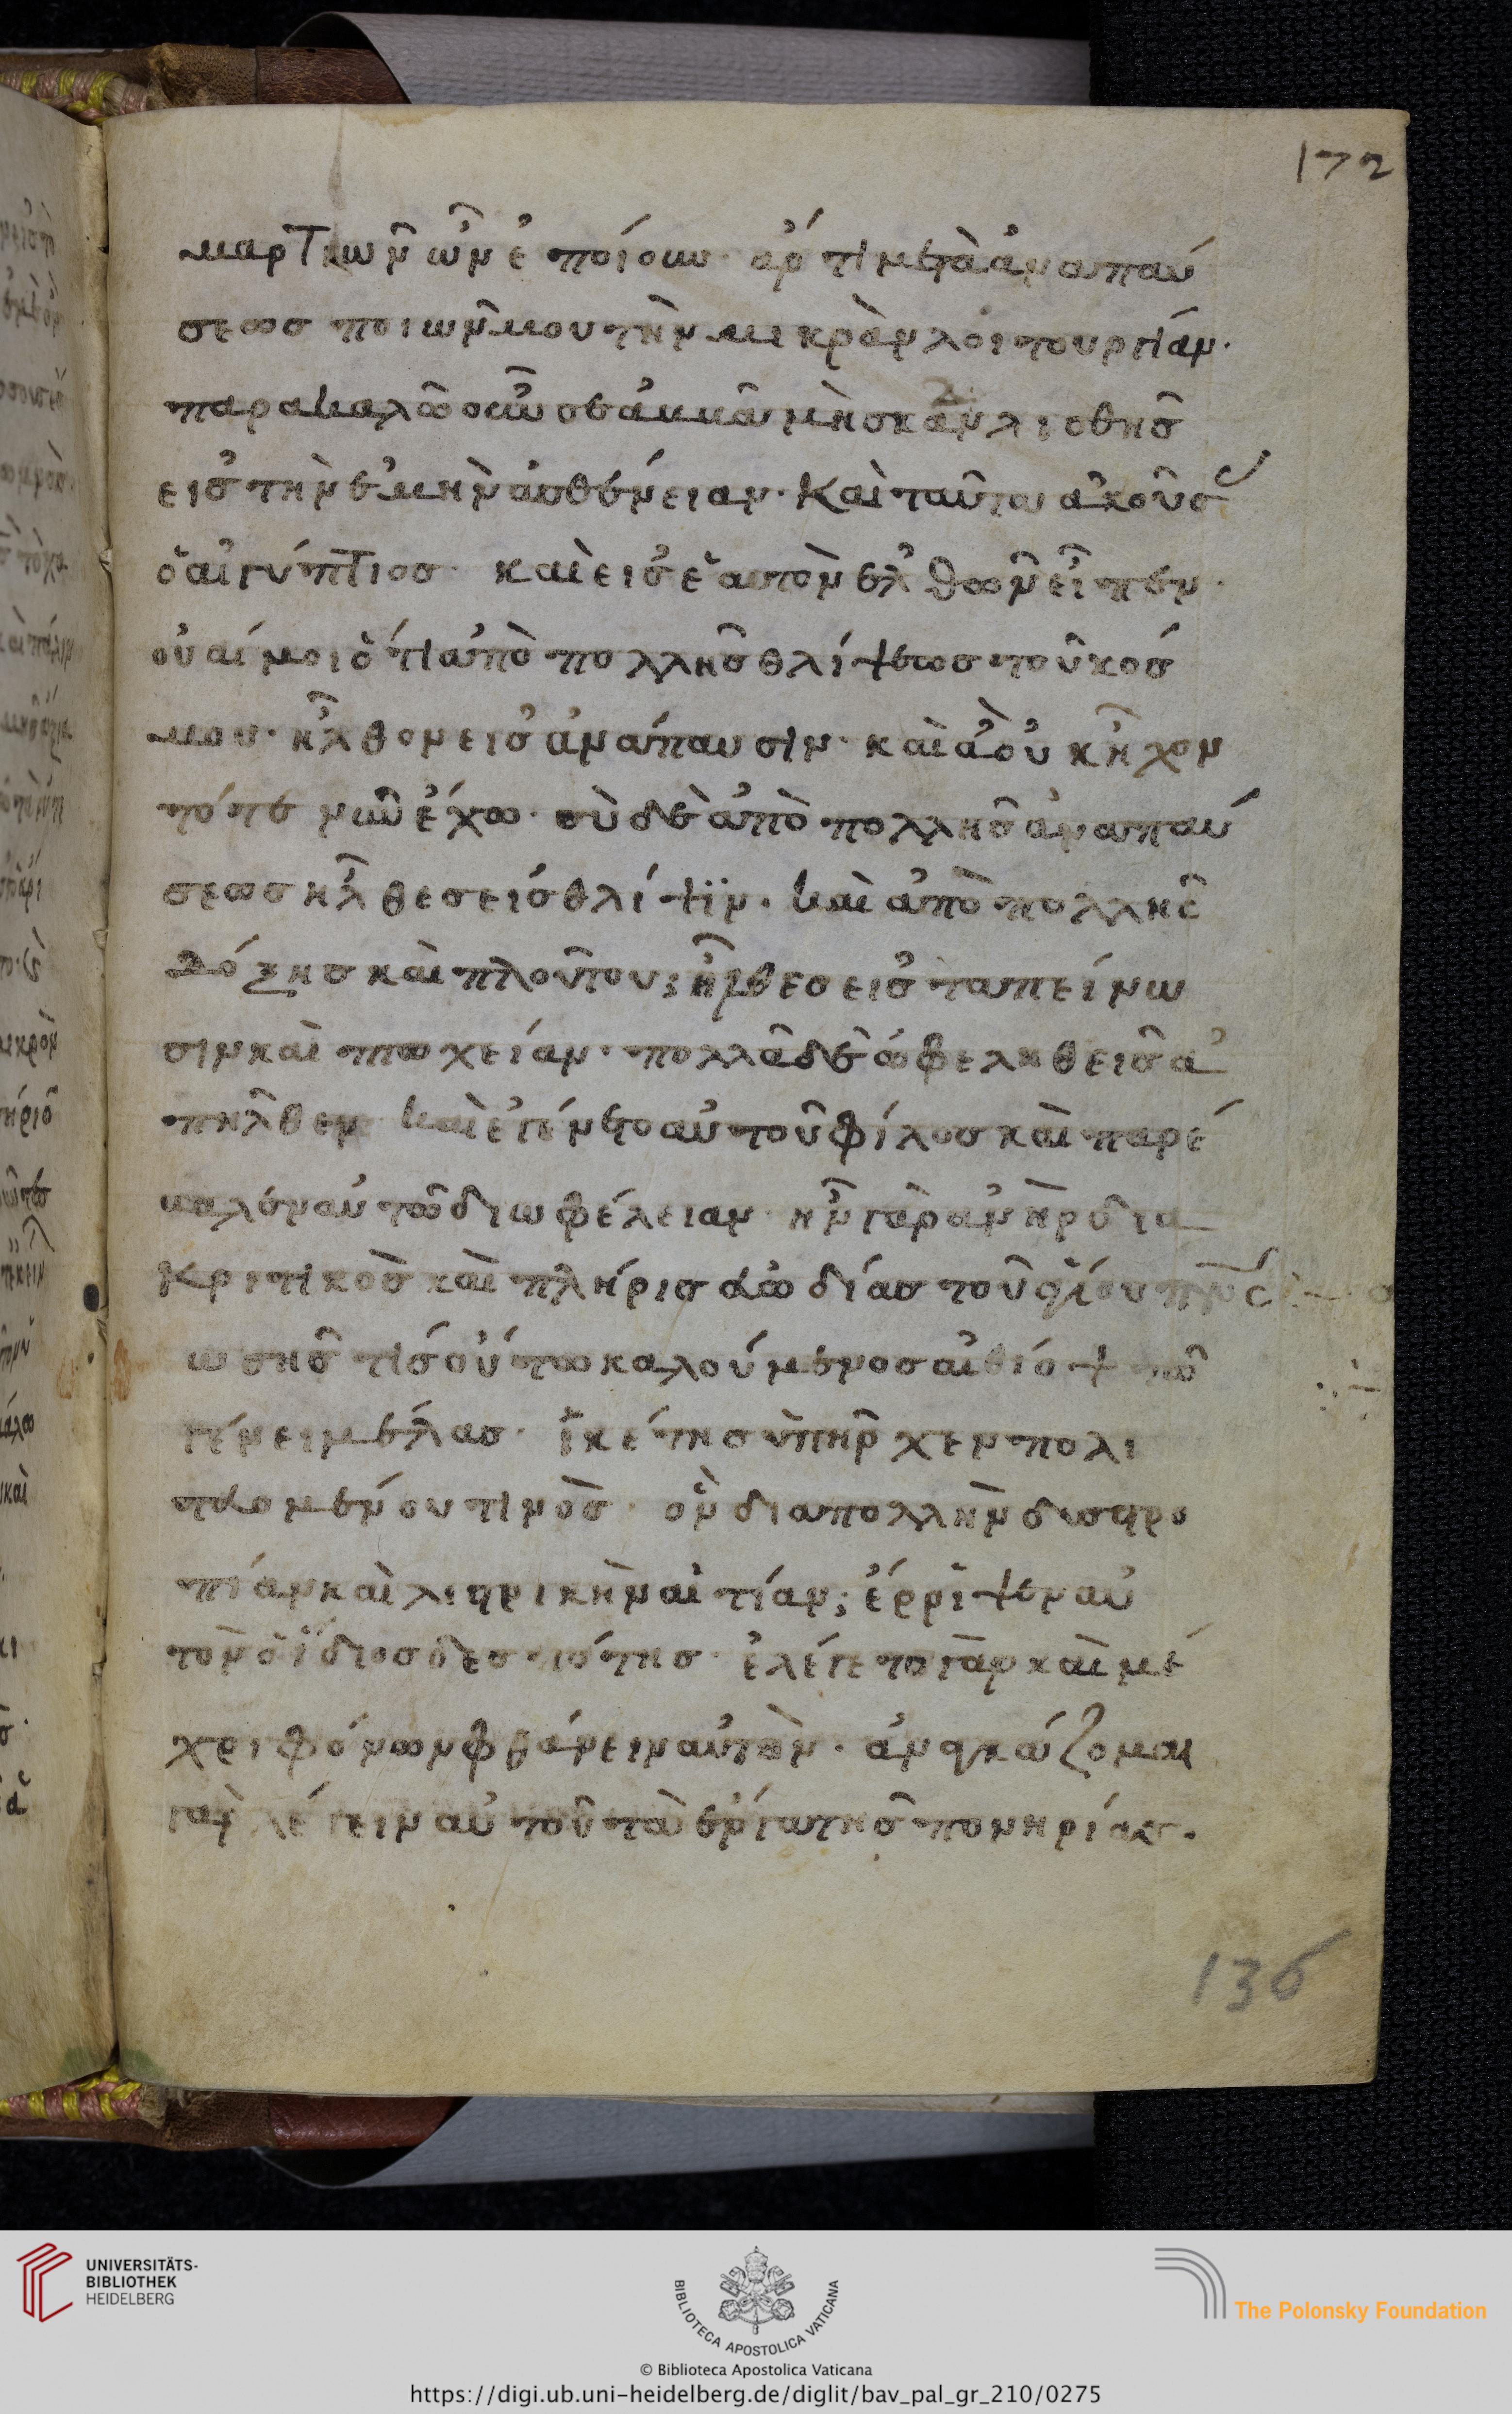 172
μαρτιων ὧν ἐποίουν· ἄρτι μετὰ ἀναπαύ
σεωσ ποιῶν μου τὴν μικρὰν λοιτουργίαν·
παρακαλῶ οὖν σε ἀμμᾶ μὴ σκανλισθῆσ
εισ τὴν ἐμὴν ἀσθένειαν· Καὶ ταῦτα ἀκούσ
ὁ αἰγύπτιοσ· καὶ εισ ἑαυτὸν ἐλθῶν εἶπεν·
οὐαί μοι ὅτι ἀπὸ πολλῆσ θλίψεωσ τοῦ κόσ
μου· ἦλθον εισ ἀνάπαυσιν· καὶ ἃ οὐκ ἦχον
τότε νῦν ἔχω· σὺ δὲ ἀπὸ πολλῆσ ἀναπαύ
σεωσ ἦλθεσ εισ θλίψιν· καὶ ἀπὸ πολλῆσ
δόξησ καὶ πλούτου; ἦλθεσ εισ ταπείνω
σιν καὶ πτωχείαν· πολλὰ δὲ ὀφεληθεισ ἀ
πῆλθεν καὶ ἐγένετο αὐτοῦ φίλοσ καὶ παρέ
καλεν αὐτῶ δι ωφέλειαν· ἦν γὰρ ἀνὴρ δια
κριτικὸσ καὶ πλήρισ εὐωδίασ τοῦ ἁγίου πνσ
ωσησ τίσ οὕτω καλούμενοσ αἰθίοψ τῶ
γένει μέλασ· ἱκέτησ ὑπῆρχεν πολι
τευομένου τινὸσ· ὃν δια πολλὴν δυστρο
πίαν καὶ λιστρικὴν αἰτίαν; ἔρριψεν αὐ
τὸν ὁ ἴδιοσ δεσπότησ· ἐλέγετο γὰρ καὶ μέ
χρι φόνων φθάνειν αὐτὸν· ἀναγκάζομαι
γαρ λέγειν αὐτοῦ τὰ ἔργα τῆσ πονηρίασ·
136
UNIVERSITÄTS-
BIBLIOTHEK
HEIDELBERG
BIBLIOTECA APOSTOLICA VATICANA
The Polonsky Foundation
© Biblioteca Apostolica Vaticana
https://digi.ub.uni-heidelberg.de/diglit/bav_pal_gr_210/0275